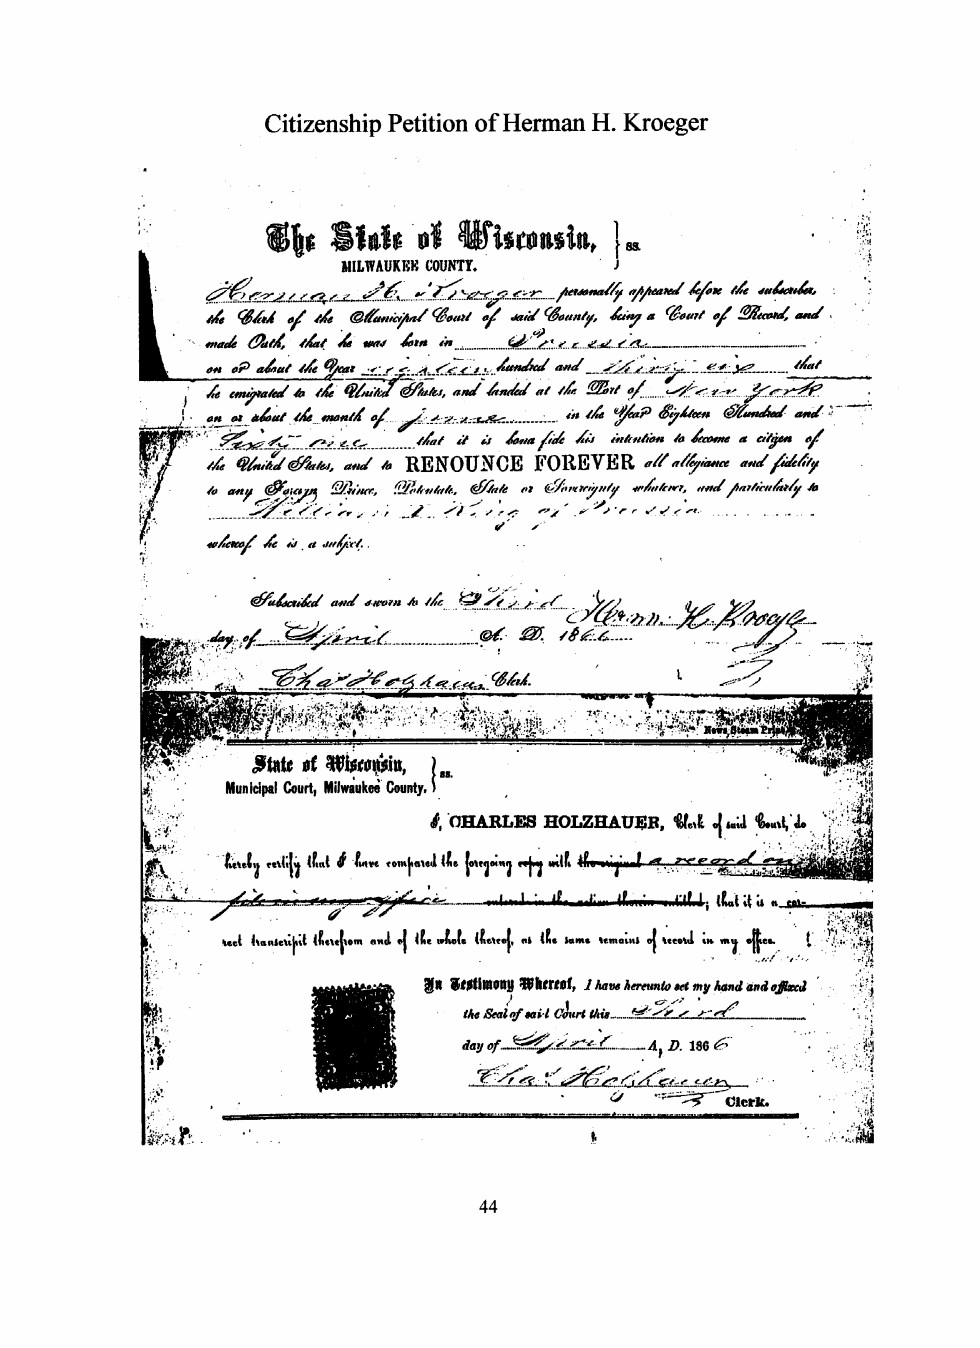 Citizenship Petition of Herman H. Kroeger
The State of Wisconsin, } ss.
MILWAUKEE COUNTY.
Herman H. Kroeger personally appeared before the subscriber,
the Clerk of the Municipal Court of said County, being a Court of Record, and
made Oath, that he was born in Prussia
on or about the Year eighteen hundred and thirty six that
he emigrated to the United States, and landed at the Port of New York
on or about the month of june in the Year Eighteen Hundred and
Sixty one that it is bona fide his intention to become a citizen of
the United States, and to RENOUNCE FOREVER all allegiance and fidelity
to any Foreign Prince, Potentate, State or Sovereignty whatever, and particularly to
William I King of Prussia
whereof he is a subject.
Subscribed and sworn to the Third Herm. H. Kroeger
day of April A. D. 1866
Chas Holzhauer Clerk.
News Steam Print
State of Wisconsin, } ss.
Municipal Court, Milwaukee County.
I, CHARLES HOLZHAUER, Clerk of said Court, do
hereby certify that I have compared the foregoing copy with the original a record on
file in my office entered in the action therein entitled; that it is a cor-
rect transcript therefrom and of the whole thereof, as the same remains of record in my office.
In Testimony Whereof, I have hereunto set my hand and affixed
the Seal of said Court this Third
day of April A, D. 1866
Chas Holzhauer
Clerk.
44